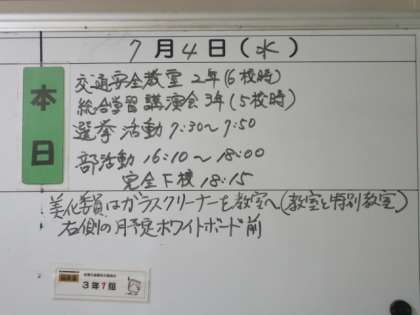 7月4日(水)
本日
交通安全教室 2年(6校時)
総合学習 講演会 3年(5校時)
選挙活動 7:30〜7:50
部活動 16:10〜18:00
完全下校 18:15
美化委員はガラスクリーナーを教室へ(教室と特別教室)
右側の月予定ホワイトボード前
3年1組